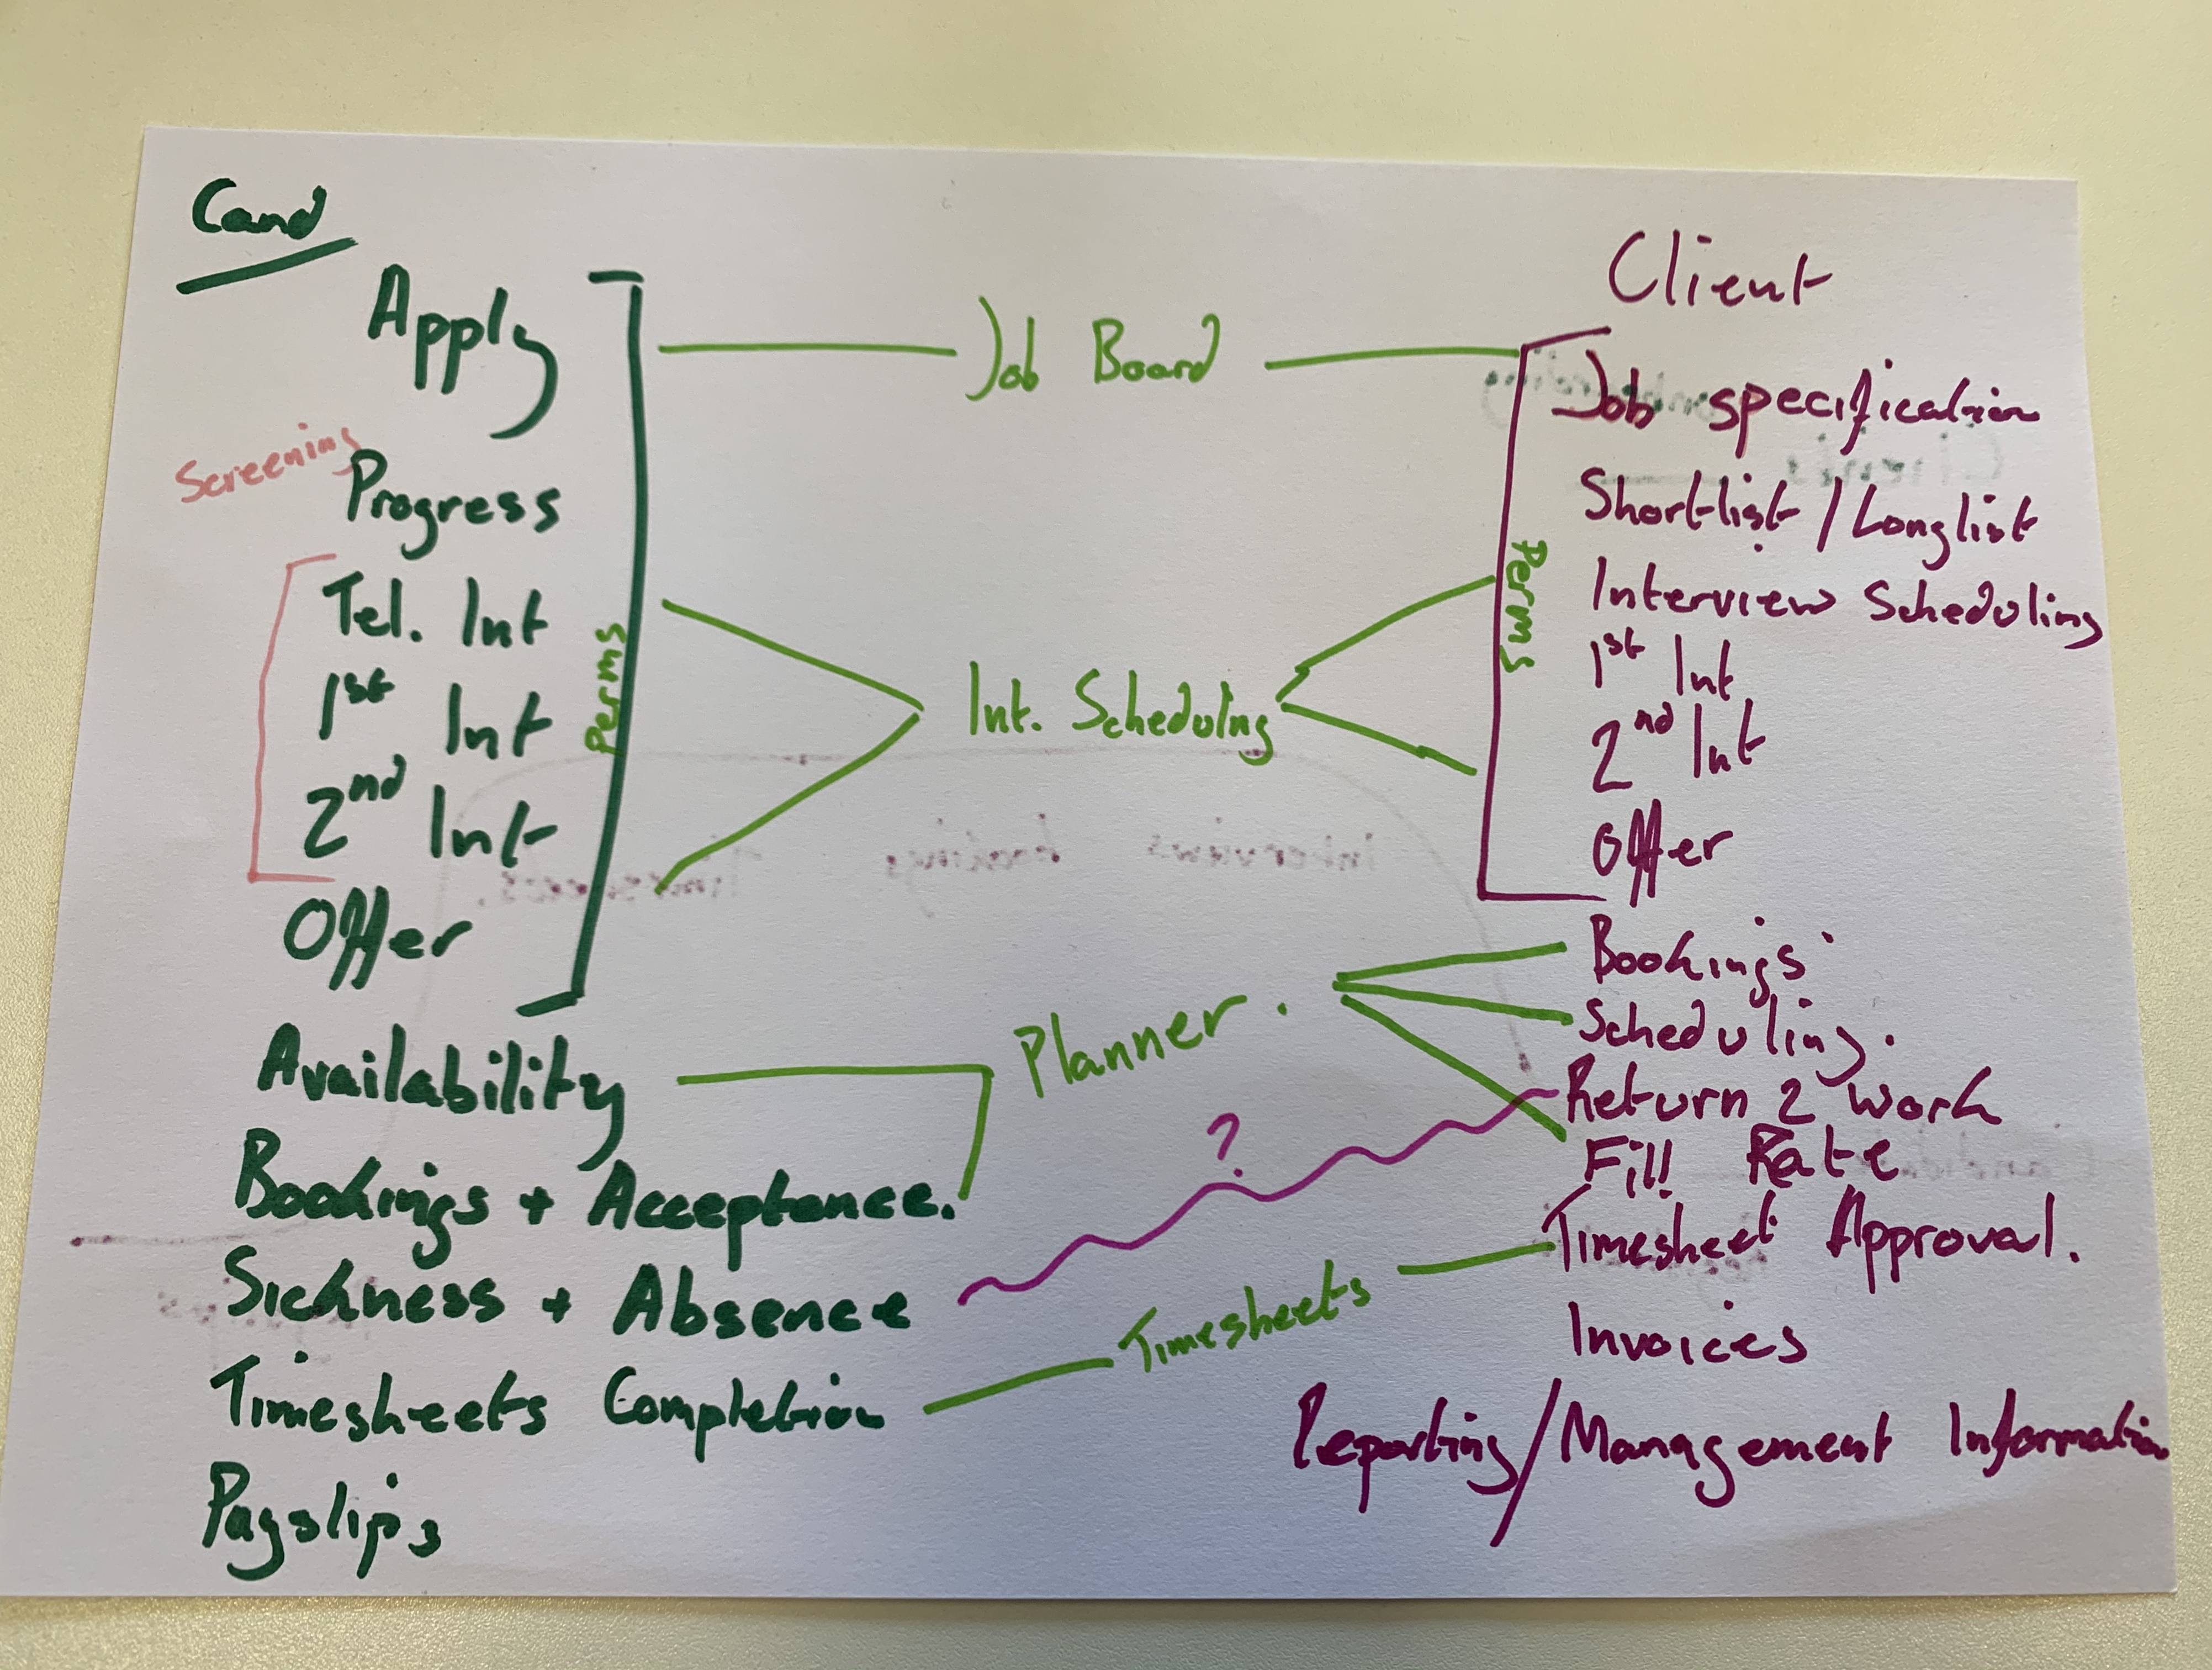 Cand
Apply
Screening
Progress
Tel. Int
1st Int
2nd Int
Offer
Perms
Availability
Bookings + Acceptance.
Sickness + Absence
Timesheets Completion
Payslips
Job Board
Int. Scheduling
Planner.
?
Timesheets
Client
Job specification
Shortlist / Longlist
Interview Scheduling
1st Int
2nd Int
Offer
Perms
Bookings
Scheduling.
Return 2 Work
Fill Rate
Timesheet Approval.
Invoices
Reporting/Management Information